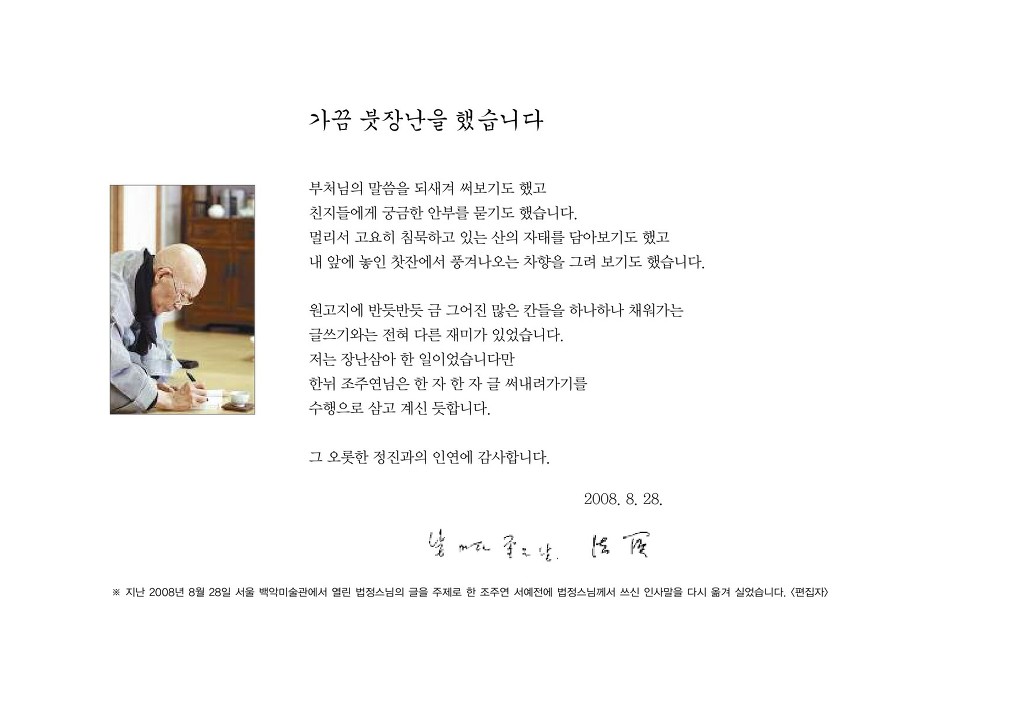 가끔 붓장난을 했습니다
부처님의 말씀을 되새겨 써보기도 했고
친지들에게 궁금한 안부를 묻기도 했습니다.
멀리서 고요히 침묵하고 있는 산의 자태를 담아보기도 했고
내 앞에 놓인 찻잔에서 풍겨나오는 차향을 그려 보기도 했습니다.
원고지에 반듯반듯 금 그어진 많은 칸들을 하나하나 채워가는
글쓰기와는 전혀 다른 재미가 있었습니다.
저는 장난삼아 한 일이었습니다만
한뉘 조주연님은 한 자 한 자 글 써내려가기를
수행으로 삼고 계신 듯합니다.
그 오롯한 정진과의 인연에 감사합니다.
2008. 8. 28.
法頂
※ 지난 2008년 8월 28일 서울 백악미술관에서 열린 법정스님의 글을 주제로 한 조주연 서예전에 법정스님께서 쓰신 인사말을 다시 옮겨 실었습니다. 〈편집자〉